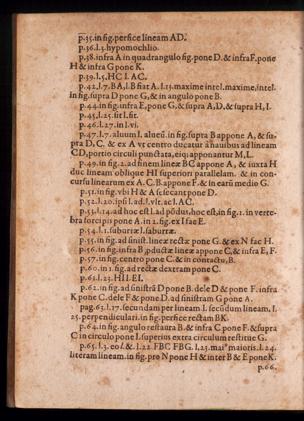 p.35.in fig.perfice lineam AD.
p.36.l.3.hypomochlio.
p.38.infra A in quadrangulo fig.pone D.& infra F.pone
H & infra G pone K.
p.39.l.5.HC l. AC.
p.42.l.7.BA,l.B fiat A. l.13.maxime intel.maxime,intel.
In fig.supra D pone G,& in angulo pone B.
p.44.in fig.infra E,pone G,& supra A,D,& supra H, I.
p.45.l.25.sit l.fit.
p.46.l.27.in l.vi.
p.47.l.7.aluum l. alueũ.in fig.supra B appone A, & su-
pra D, C. & ex A vs centro ducatur à nauibus ad lineam
CD,portio circuli punctata,eiq; apponantur M, L.
p.49.in fig.2.ad finem lineæ BC appone A, & iuxta H
duc lineam oblique HI superiori parallelam. & in con-
cursu linearum ex A.C.B.appone F.& in earũ medio G.
p.51.in fig.vbi H & A se secant pone D.
p.52.l.20.ipsi l.ad.l.vlt.ac l.AC.
p.53.l.14.ad hoc est l.ad põdus,hoc est,in fig.1. in verte-
bra forcipis pone A.in 2.fig.ex I fac E.
p.54.l.1.saburiæ l.saburræ.
p.55.in fig.ad sinist.lineæ rectæ pone G.& ex N fac H.
p.56.in fig.infra B,ꝓductæ lineæ appone C,& infra E, F.
p.57.in fig.centro pone C,& in contactu,B.
p.60.in 1.fig.ad rectæ dextram pone C.
p.61.l.23.HII.EI.
p.62.in fig.ad sinistrã D pone B. dele D & pone F. infra
K pone C.dele F & pone D. ad sinistram G pone A.
pag.63.l.17.secundam per lineam l. secũdum lineam. l.
25.perpendiculari.in fig.perfice rectam BK.
p.64.in fig.angulo restaura B.& infra C pone F.& supra
C in circulo pone I.superius extra circulum restitue G.
p.65.l.3.eo l.&.l.22.FBC FBG. l.23.mai⁹ maioris.l.24.
literam lineam.in fig.pro N pone H & inter B & E pone K.
p.66.